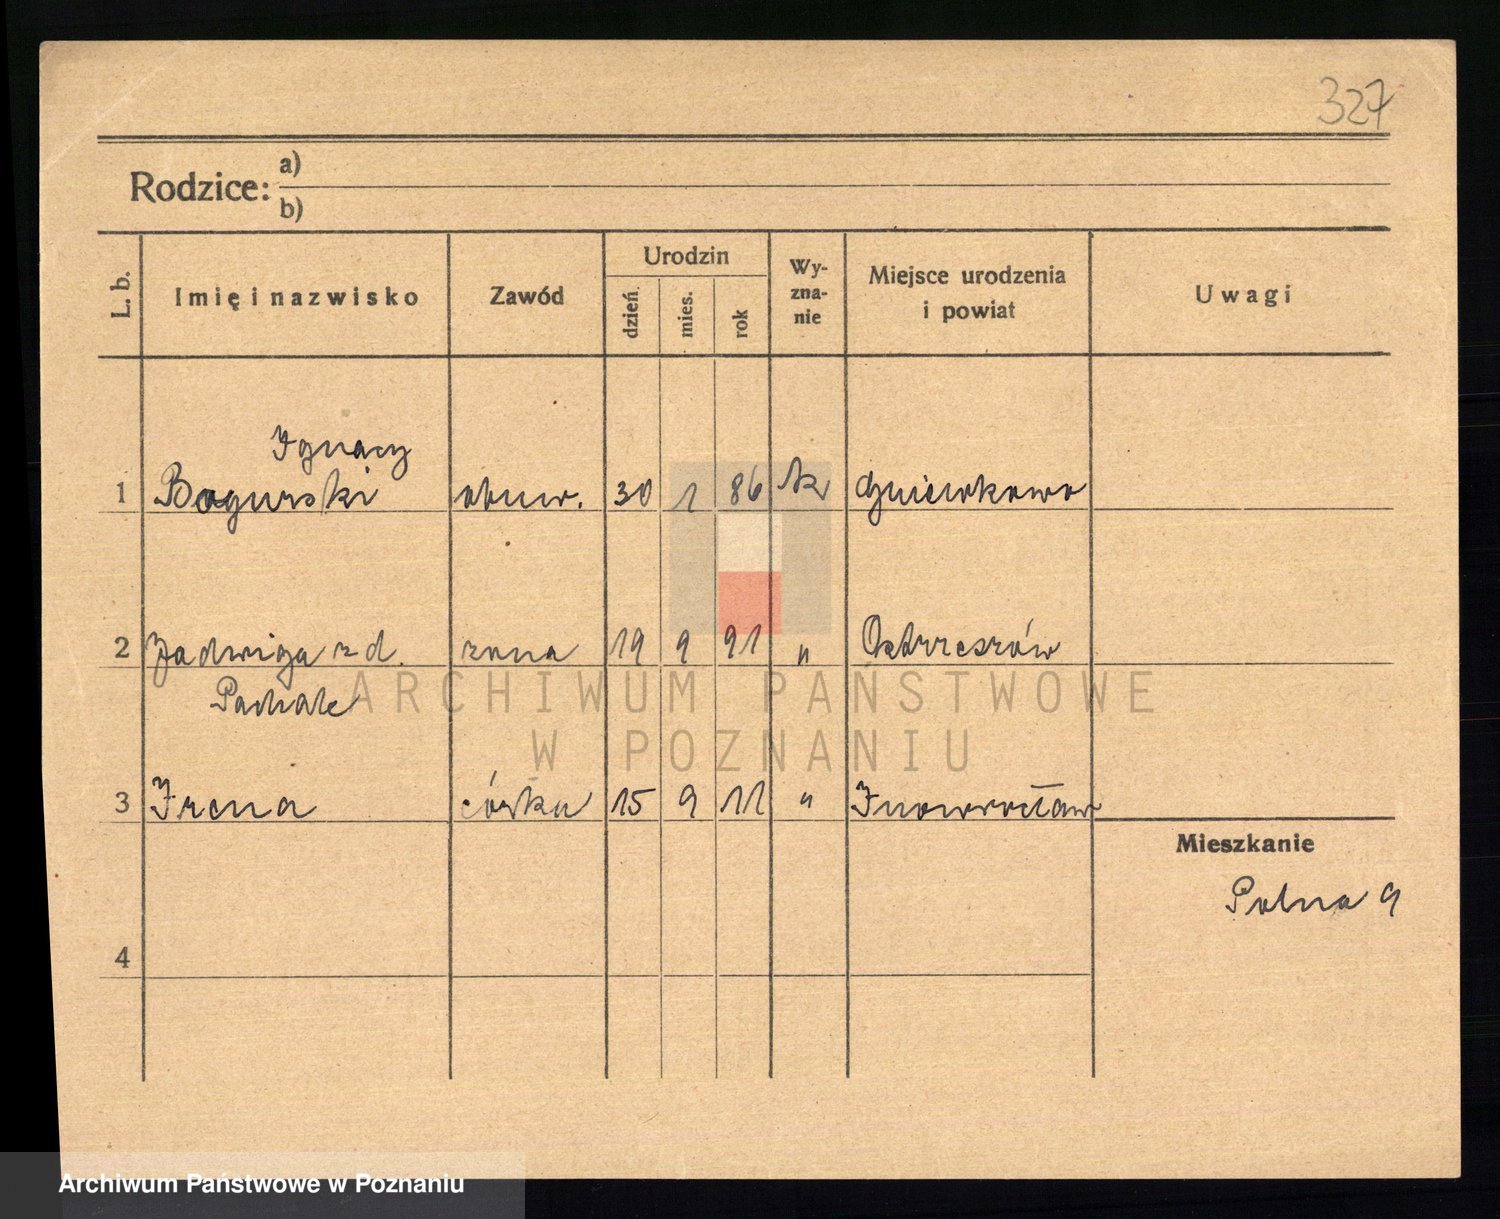 327
Rodzice: a)
b)
L. b. Imię i nazwisko Zawód Urodzin dzień mies. rok Wy-zna-nie Miejsce urodzenia i powiat Uwagi
Ignacy
1 Bogurski obuw. 30 1 86 rk Gniewkowo
2 Jadwiga z d. żona 19 9 91 " Ostrzeszów
Pachale
3 Irena córka 15 9 11 " Inowrocław
Mieszkanie
Polna 9
4
ARCHIWUM PAŃSTWOWE
W POZNANIU
Archiwum Państwowe w Poznaniu